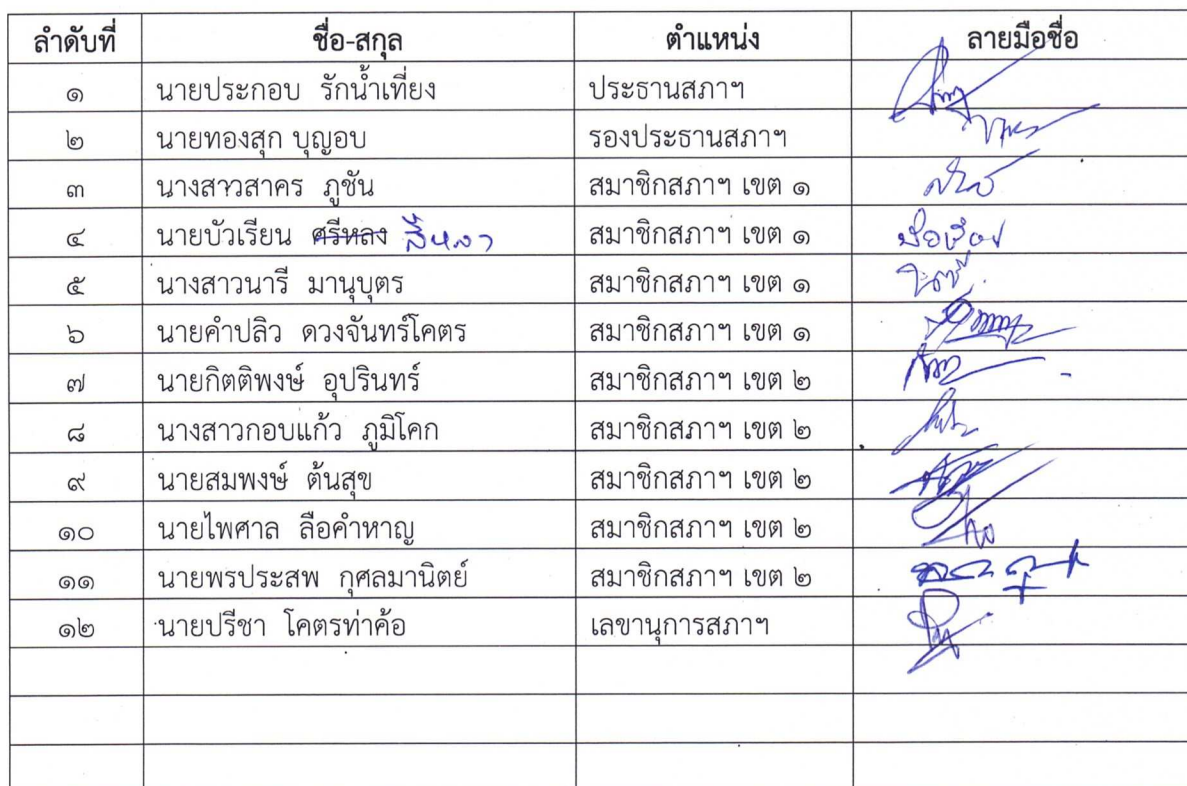 ลำดับที่ ชื่อ-สกุล ตำแหน่ง ลายมือชื่อ
๑ นายประกอบ รักน้ำเที่ยง ประธานสภาฯ
๒ นายทองสุก บุญอบ รองประธานสภาฯ
๓ นางสาวสาคร ภูชัน สมาชิกสภาฯ เขต ๑
๔ นายบัวเรียน ศรีหลง สีหลา สมาชิกสภาฯ เขต ๑
๕ นางสาวนารี มานุบุตร สมาชิกสภาฯ เขต ๑
๖ นายคำปลิว ดวงจันทร์โคตร สมาชิกสภาฯ เขต ๑
๗ นายกิตติพงษ์ อุปรินทร์ สมาชิกสภาฯ เขต ๒
๘ นางสาวกอบแก้ว ภูมิโคก สมาชิกสภาฯ เขต ๒
๙ นายสมพงษ์ ต้นสุข สมาชิกสภาฯ เขต ๒
๑๐ นายไพศาล ลือคำหาญ สมาชิกสภาฯ เขต ๒
๑๑ นายพรประสพ กุศลมานิตย์ สมาชิกสภาฯ เขต ๒
๑๒ นายปรีชา โคตรท่าค้อ เลขานุการสภาฯ